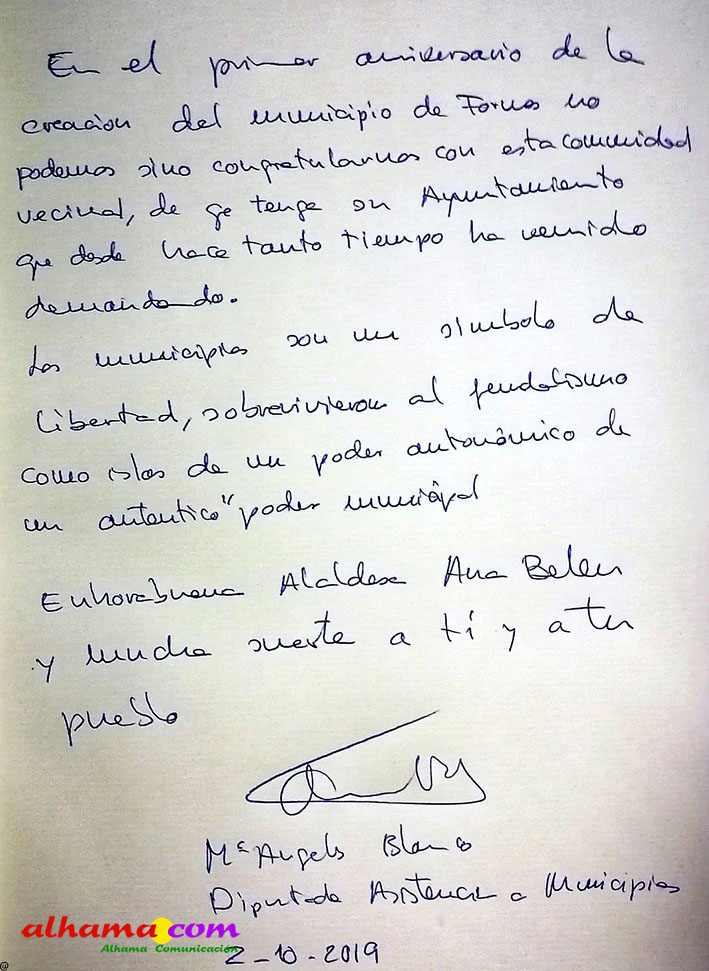 En el primer aniversario de la
creacion del municipio de Fornes no
podemos sino congratularnos con esta comunidad
vecinal, de qe tenga su Ayuntamiento
que desde hace tanto tiempo ha venido
demandando.
Los municipios son un simbolo de
libertad, sobrevivieron al feudalismo
como islas de un poder autonómico de
un autentico "poder municipal
Enhorabuena Alcaldesa Ana Belen
y mucha suerte a tí y a tu
pueblo
Mª Angels Blanco
Diputada Asistencia a Municipios
2-10-2019
alhama.com
Alhama Comunicación
@